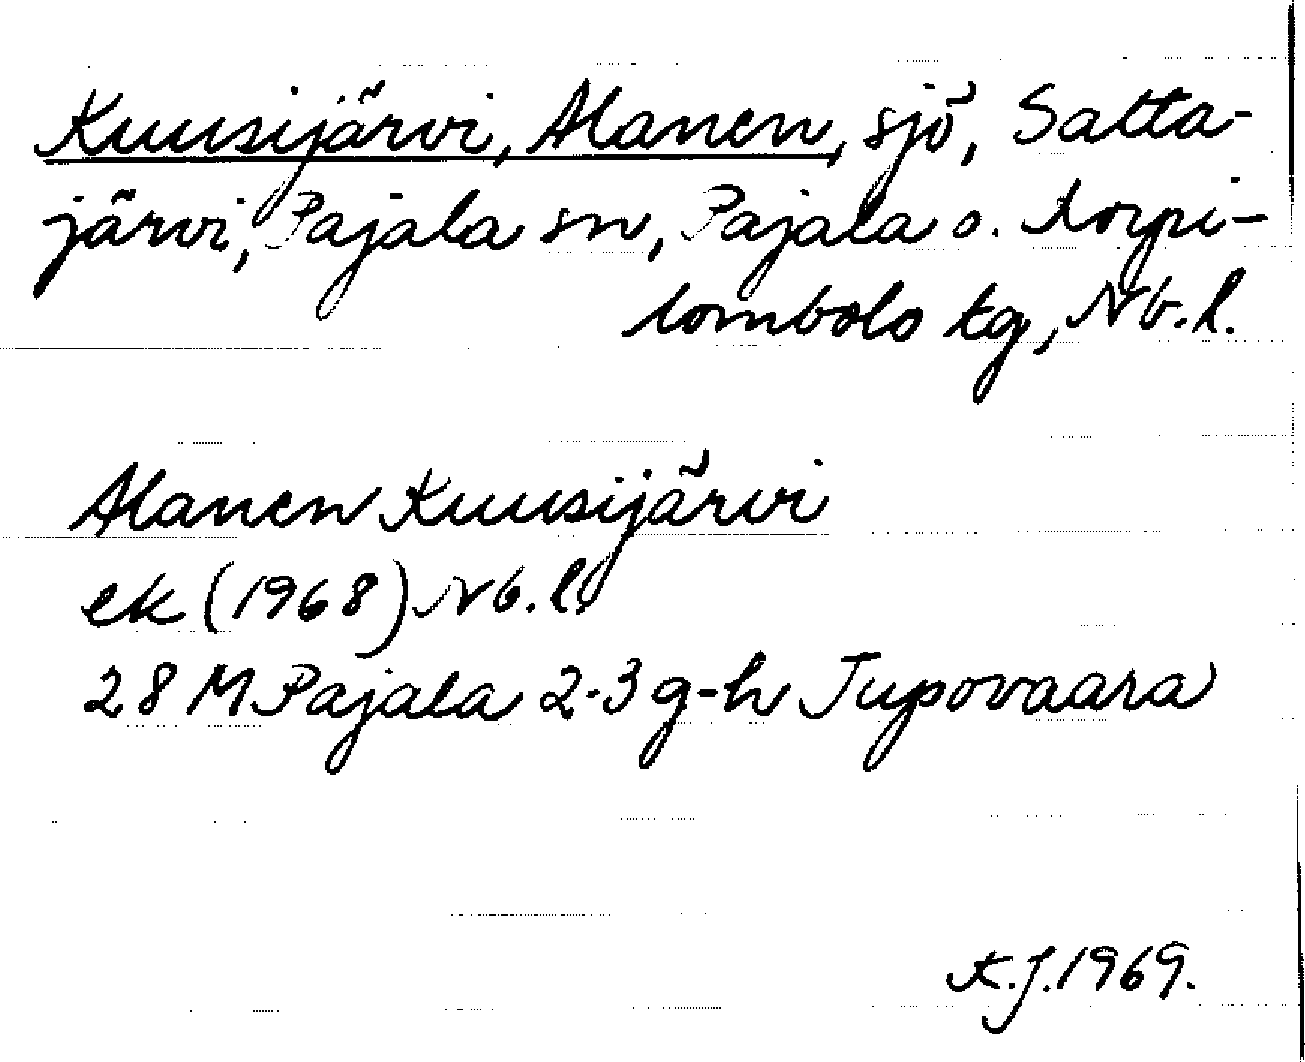 Kuusijärvi, Alanen, sjö, Satta-
järvi, Pajala sn, Pajala o. Korpi-
lombolo tg, Nb.l.
Alanen Kuusijärvi
ek (1968) Nb.l.
28 M Pajala 2-3 g-h Jupovaara
K.J. 1969.